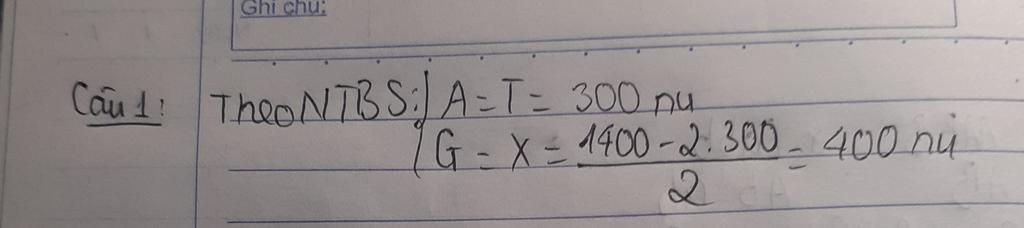 Ghi chú:
Câu 1: Theo NTBS: A = T = 300 nu
G = X = 1400 - 2.300 / 2 = 400 nu